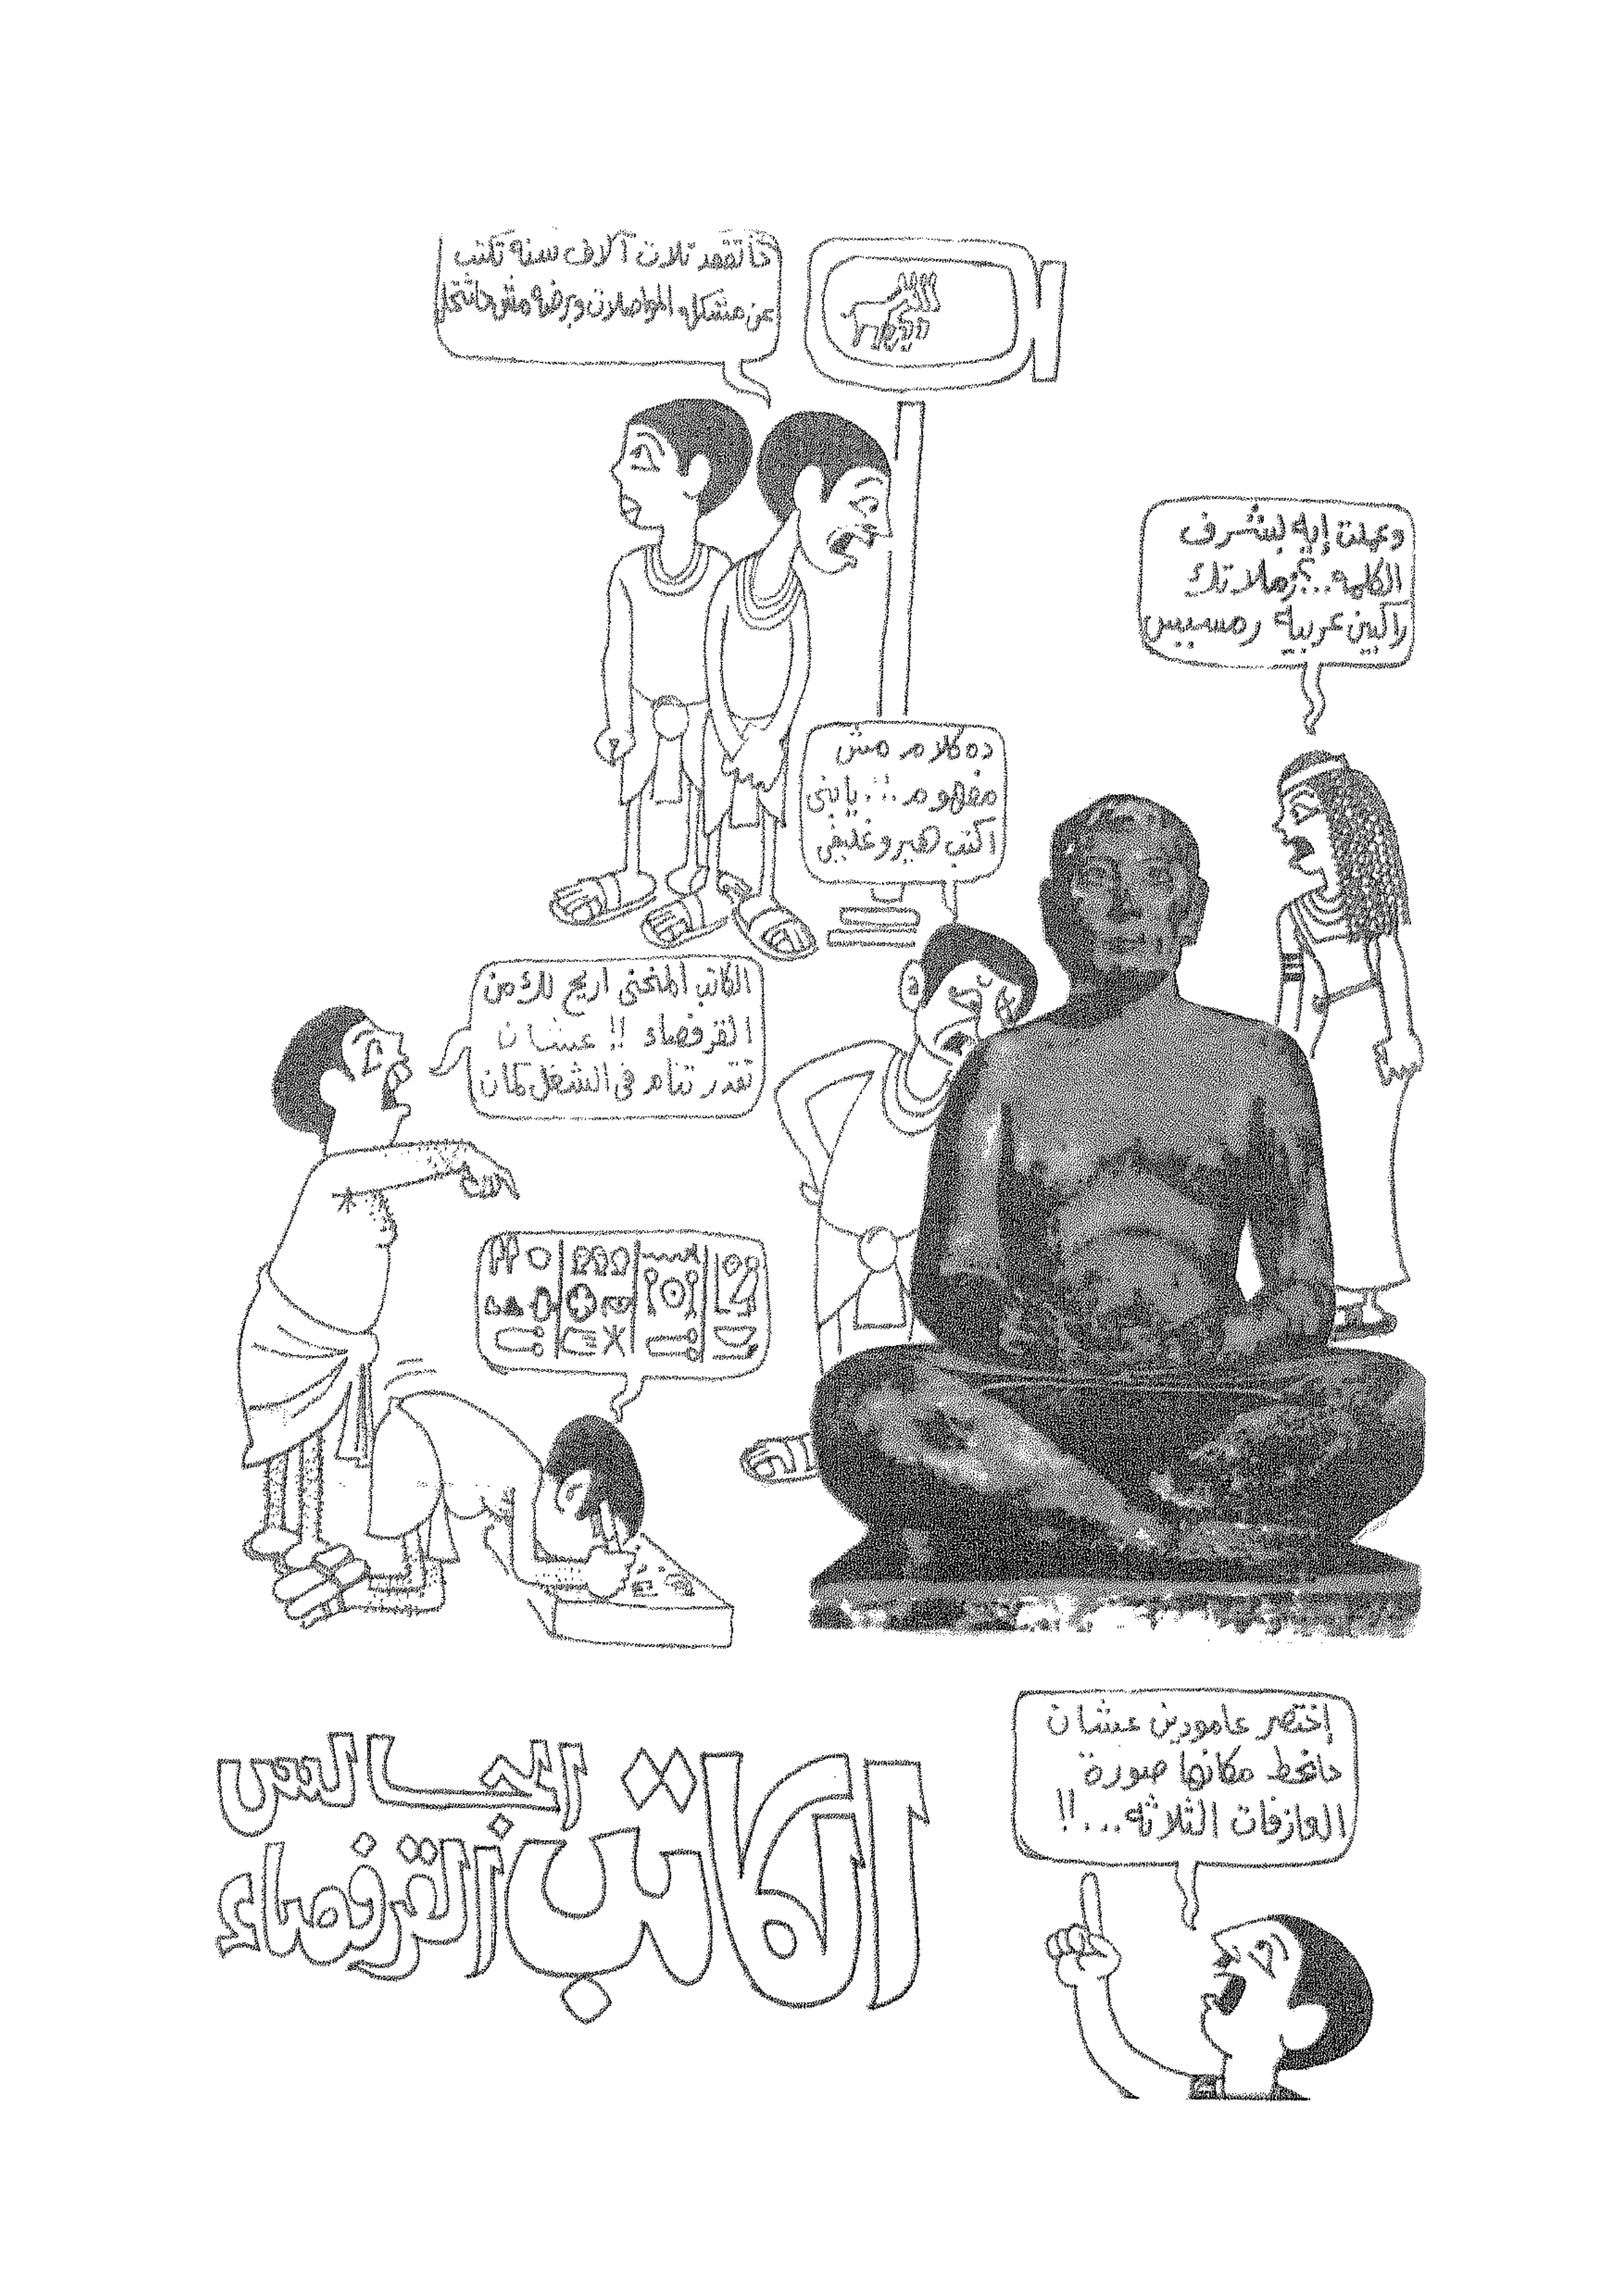 حاتقعد تلات آلاف سنه تكتب
عن مشكله المواصلات وبرضه مش حاتتحل
وعملت إيه لبشرف
الكلمه..؟ زملاتك
راكبين عربية رمسيس
ده كلام مش
مفهوم... يابنى
اكتب هيروغليفى
الكاتب المنحنى اريح لك من
القرفصاء !! عشان
تقدر تنام فى الشغل كمان
إختصر عامودين عشان
حانحط مكانها صورة
العازفات الثلاثه...!!
الكاتب الجالس
القرفصاء